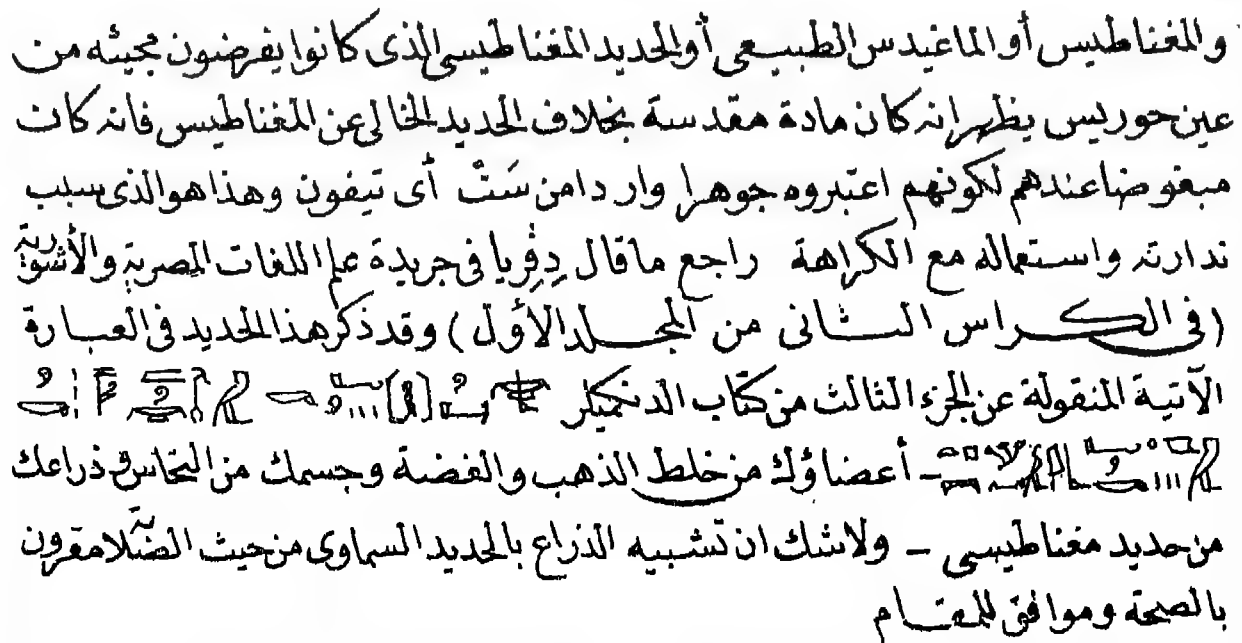 والمغناطيس أو الماغيدس الطبيعى أو الحديد المغناطيسى الذى كانوا يفرضون مجيئه من
عين حوريس يظهر انه كان مادة مقدسة بخلاف الحديد الخالى عن المغناطيس فانه كان
مبغوضا عندهم لكونهم اعتبروه جوهرا واردا من سَتْ أى تيفون وهذا هو الذى سبب
ندارته واستعماله مع الكراهة راجع ما قال دِڤِريا فى جريدة علم اللغات المصرية والأشورية
(فى الكراس الثانى من المجلد الأول) وقد ذكر هذا الحديد فى العبارة
الآتية المنقولة عن الجزء الثالث من كتاب الدنكميلر
ـ أعضاؤك من خلط الذهب والفضة وجسمك من النحاس وذراعك
من حديد مغناطيسى ـ ولا شك ان تشبيه الذراع بالحديد السماوى من حيث الصلابة مقرون
بالصحة وموافق للمقام